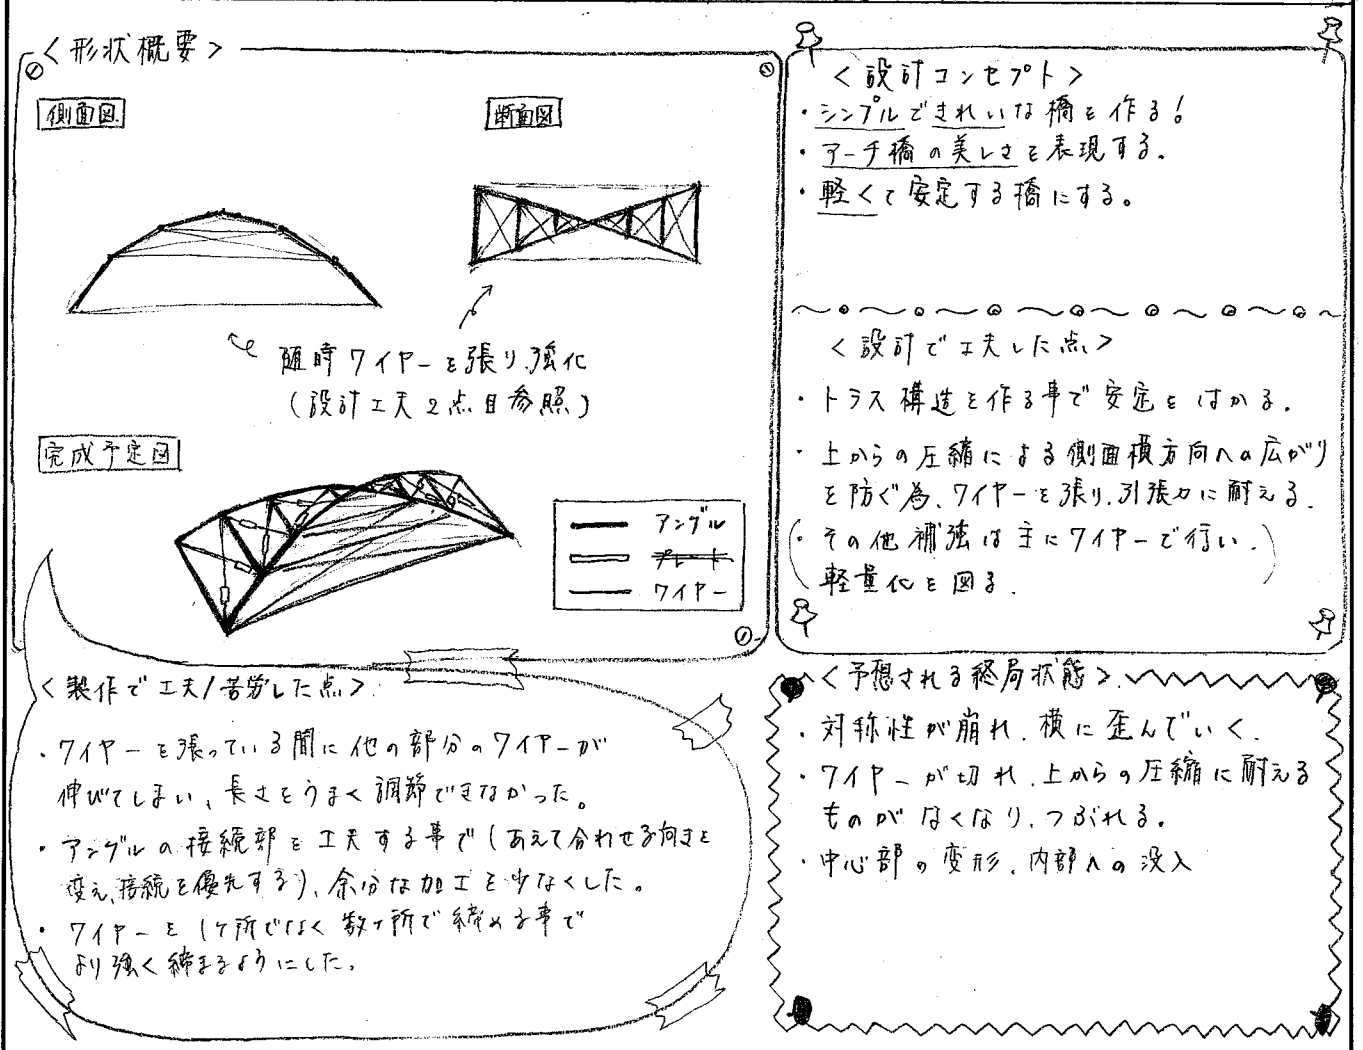 <形状概要>
側面図
断面図
随時ワイヤーを張り、強化
(設計工夫2点目参照)
完成予定図
アングル
プレート
ワイヤー
<設計コンセプト>
・シンプルできれいな橋を作る!
・アーチ橋の美しさを表現する。
・軽くて安定する橋にする。
<設計で工夫した点>
・トラス構造を作る事で安定をはかる。
・上からの圧縮による側面横方向への広がり
を防ぐ為、ワイヤーを張り、引張力に耐える。
(・その他補強は主にワイヤーで行い、
軽量化を図る。)
<製作で工夫/苦労した点>
・ワイヤーを張っている間に他の部分のワイヤーが
伸びてしまい、長さをうまく調節できなかった。
・アングルの接続部を工夫する事で(あえて合わせる向きを
変え、接続を優先する)、余分な加工を少なくした。
・ワイヤーを1ヶ所でなく数ヶ所で締める事で
より強く締まるようにした。
<予想される終局状態>
・対称性が崩れ、横に歪んでいく。
・ワイヤーが切れ、上からの圧縮に耐える
ものがなくなり、つぶれる。
・中心部の変形、内部への没入